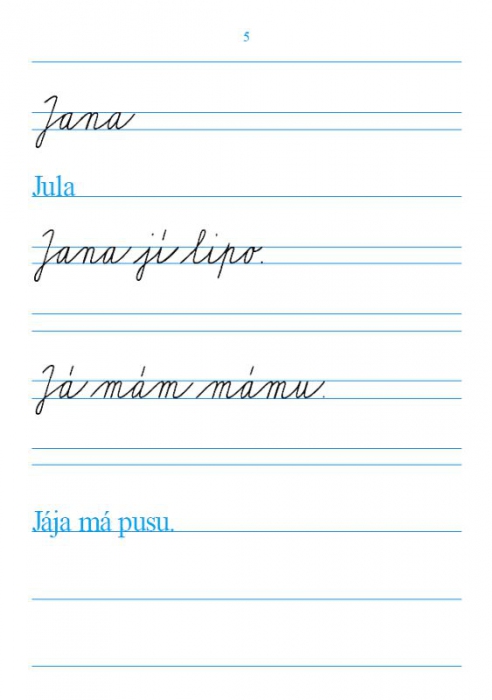 5
Jana
Jula
Jana jí lipo.
Já mám mámu.
Jája má pusu.